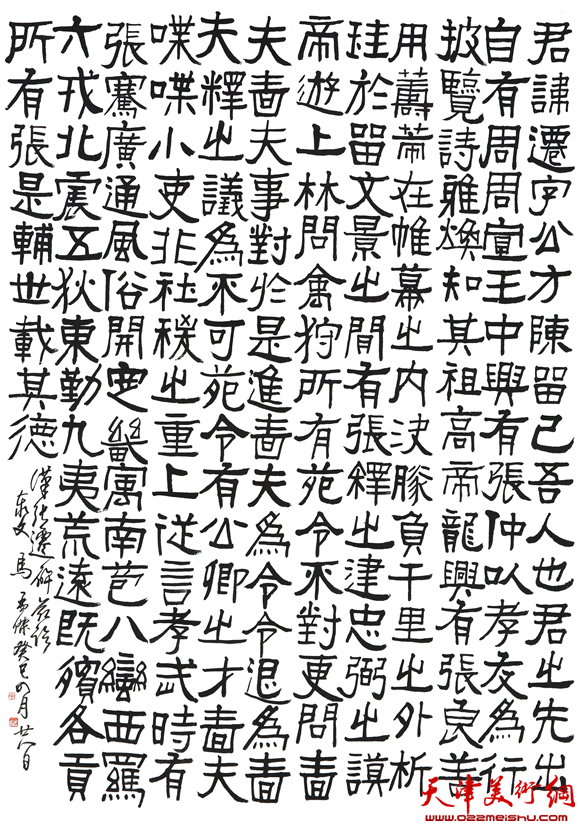 君諱遷字公才陳留己吾人也君之先出
自有周周宣王中興有張仲以孝友為行
披覽詩雅煥知其祖高帝龍興有張良善
用籌策在帷幕之内決勝負千里之外析
珪於留文景之間有張釋之建忠弼之謨
帝遊上林問禽狩所有苑令不對更問嗇
夫嗇夫事對於是進嗇夫為令令退為嗇
夫釋之議為不可苑令有公卿之才嗇夫
喋喋小吏非社稷之重上從言孝武時有
張騫廣通風俗開定畿寓南苞八蠻西羈
六戎北震五狄東勤九夷荒遠既殯各貢
所有張是輔世載其德
漢張遷碑
馬孟傑癸巳四月廿八日
天津美術網
www.022meishu.com